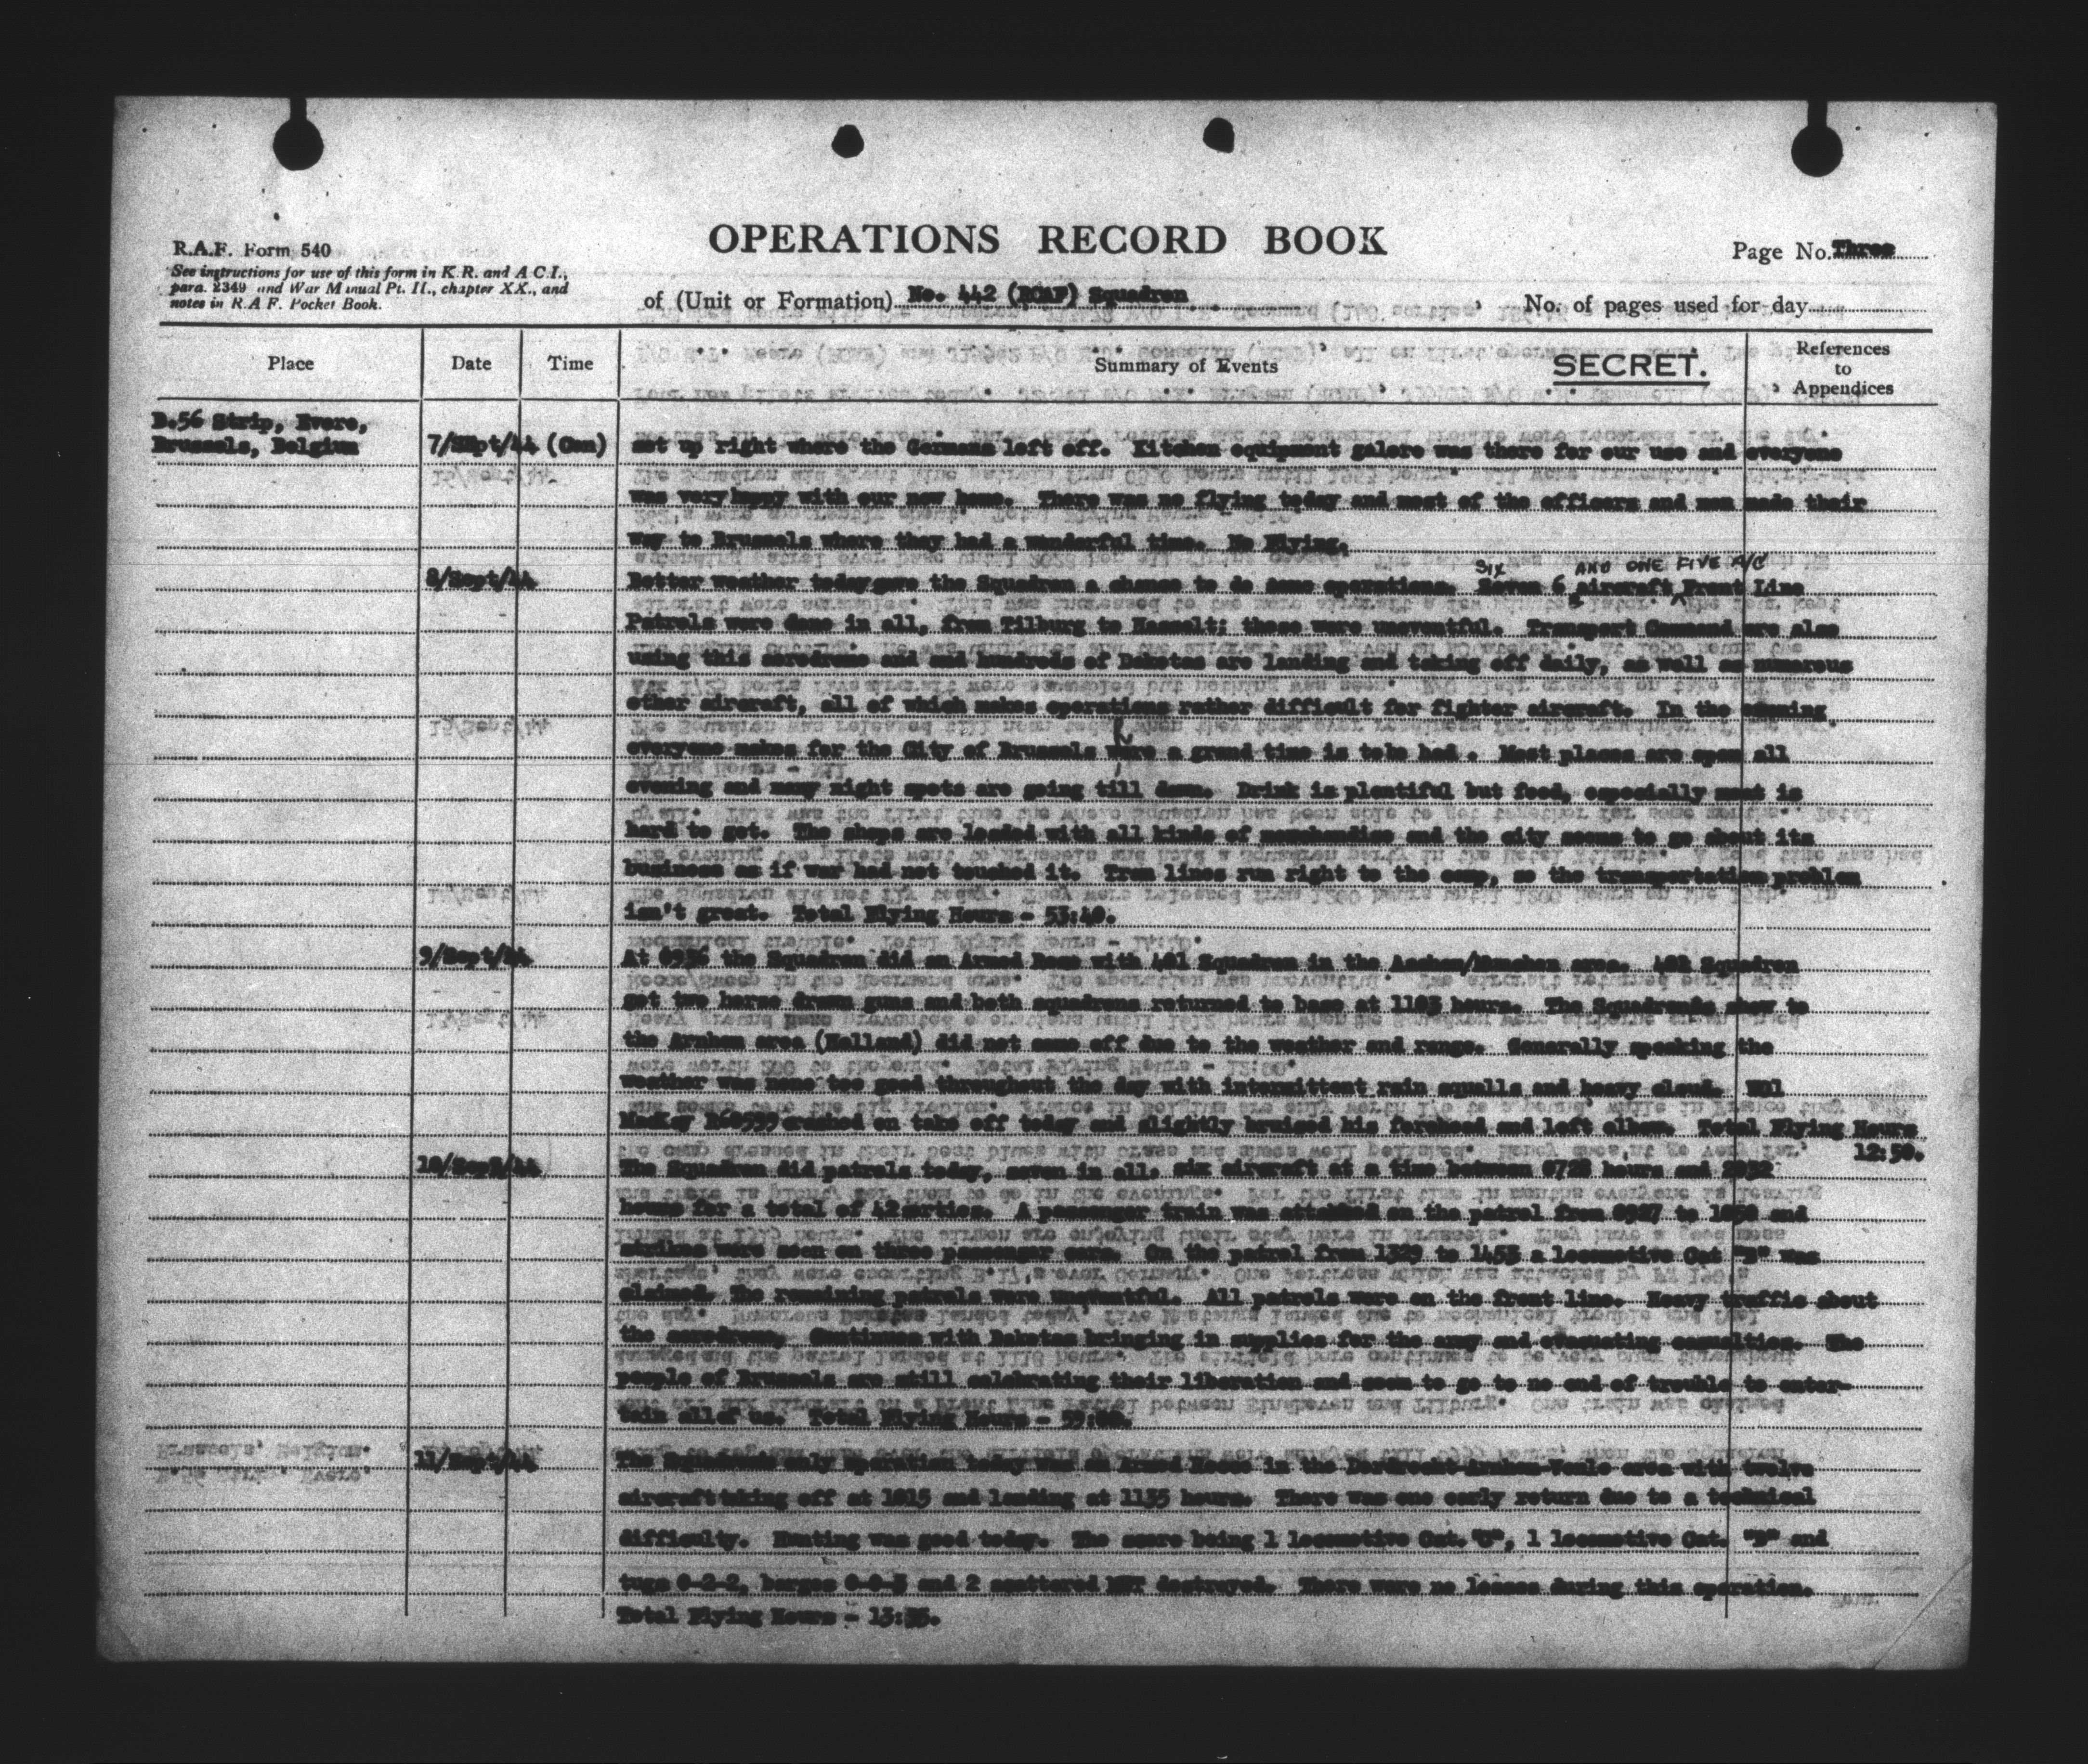 OPERATIONS RECORD BOOK
R.A.F. Form 540
See instructions for use of this form in K.R. and A.C.I.,
para. 2349 and War Manual Pt. II., chapter XX., and
notes in R.A.F. Pocket Book.
Page No. Three
of (Unit or Formation) No. 442 (RCAF) Squadron
No. of pages used for day
Place Date Time Summary of Events SECRET. References to Appendices
B.56 Strip, Evere,
Brussels, Belgium 7/SEpt/44 (Con) set up right where the Germans left off. Kitchen equipment galore was there for our use and everyone
was very happy with our new home. There was no flying today and most of the officers and men made their
way to Brussels where they had a wonderful time. No Flying.
SIX AND ONE FIVE A/C
8/Sept/44 Better weather today gave the Squadron a chance to do some operations. Seven 6 aircraft Front Line
Patrols were done in all, from Tilburg to Hasselt; these were uneventful. Transport Command are also
using this aerodrome and and hundreds of Dakotas are landing and taking off daily, as well as numerous
other aircraft, all of which makes operations rather difficult for fighter aircraft. In the evening
everyone makes for the City of Brussels were a grand time is tobe had. Most places are open all
h
evening and many night spots are going till dawn. Drink is plentiful but food, especially meat is
hard to get. The shops are loaded with all kinds of merchandise and the city seems to go about its
business as if war had not touched it. Tram lines run right to the camp, so the transportation problem
isn't great. Total Flying Hours - 53:40.
9/Sept/44 At 0936 the Squadron did an Armed Recce with 401 Squadron in the Aachen/Munchen area. 401 Squadron
got two horse drawn guns and both squadrons returned to base at 1103 hours. The Squadrons show to
the Arnhem area (Holland) did not come off due to the weather and range. Generally speaking the
weather was none too good throughout the day with intermittent rain squalls and heavy cloud. WO1
MacKay crashed on take off today and slightly bruised his forehead and left elbow. Total Flying Hours
12:50.
10/Sept/44 The Squadron did patrols today, seven in all. six aircraft at a time between 0728 hours and 2032
hours for a total of 42 sorties. A passenger train was attacked on the patrol from 0927 to 1050 and
strikes were seen on three passenger cars. On the patrol from 1329 to 1453 a locomotive Cat "B" was
claimed. The remaining patrols were uneventful. All patrols were on the front line. Heavy traffic about
the aerodrome, Continues with Dakotas bringing in supplies for the army and evacuating casualties. The
people of Brussels are still celebrating their liberation and seem to go to no end of trouble to enter-
tain allof us. Total Flying Hours -
11/Sept/44 The Squadrons only operation today was an Armed Recce in the Dordrecht-Arnhem-Venlo area with twelve
aircraft taking off at 1015 and landing at 1135 hours. There was one early return due to a technical
difficulty. Hunting was good today. The score being 1 locomotive Cat. 1 locomotive Cat. "B" and
tugs 0-2-2, barges and 2 scattered MET destroyed. There were no losses during this operation.
Total Flying Hours - 13:35.